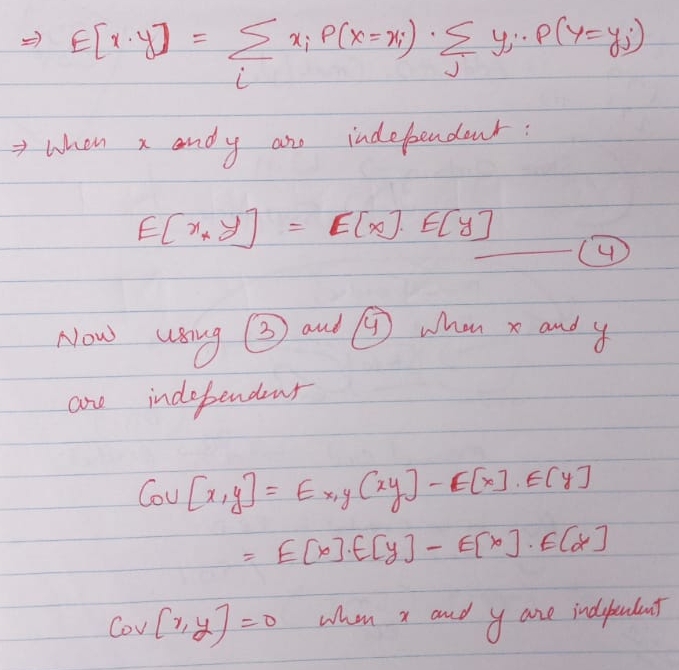 ⇒ E[x·y] = Σ x_i P(X=x_i) · Σ y_j·· P(Y=y_j)
i j
⇒ When x and y are independent :
E[x*y] = E[x]. E[y]
④
Now using ③ and ④ when x and y
are independent
Cov[x,y] = E_x,y[xy] - E[x].E[y]
= E[x].E[y] - E[x].E[y]
Cov[x,y] = 0 when x and y are independent